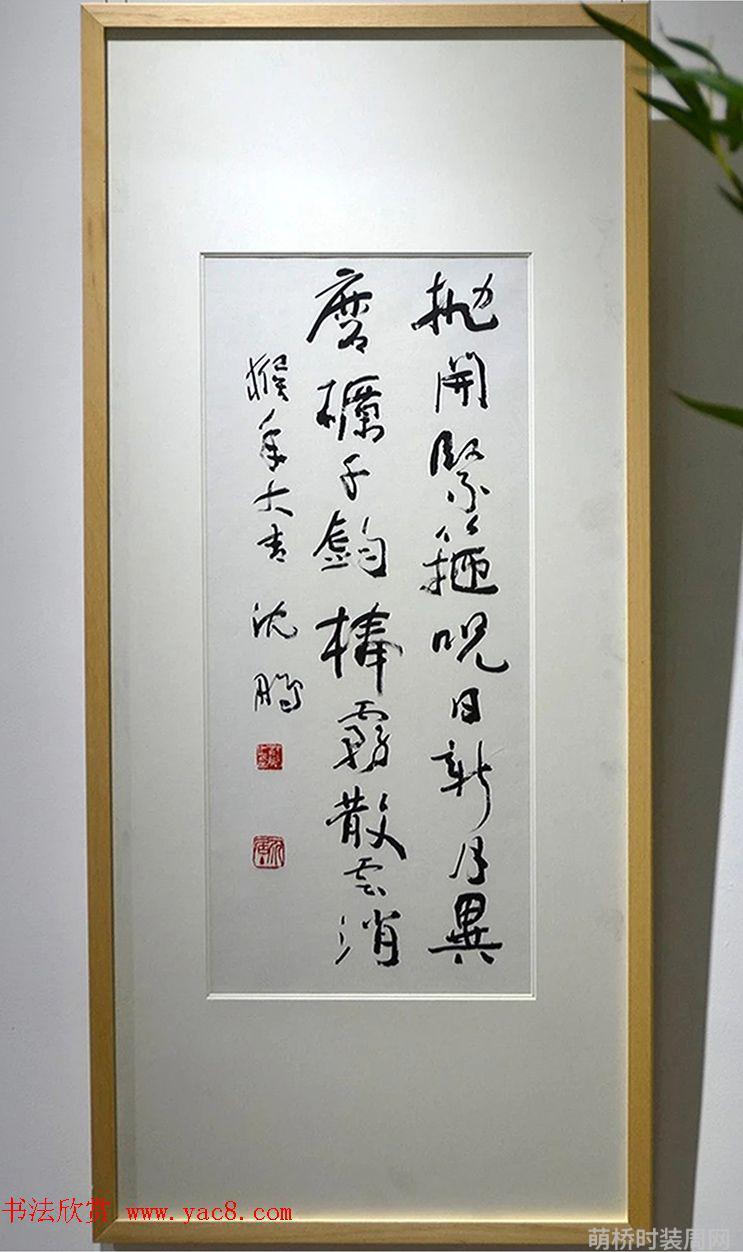 抛開緊箍呪日新月異
磨櫔千鈞棒霧散雲消
猴年大吉 沈鵬
书法欣赏 www.yac8.com
萌桥时装周网